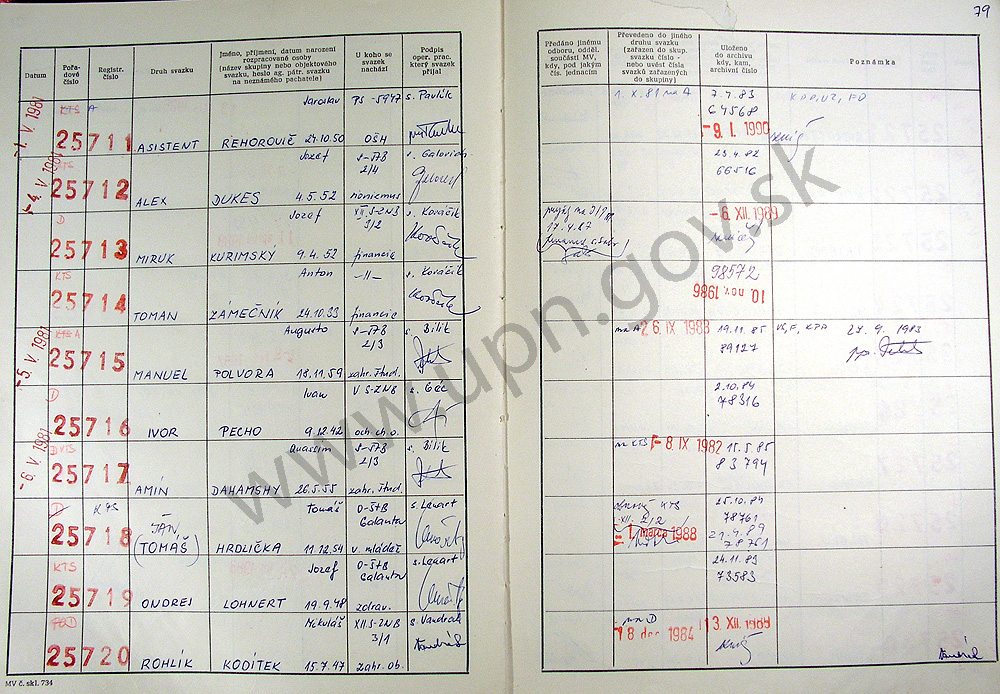 79
Datum
Pořa-
dové
číslo
Registr.
číslo
Druh svazku
Jméno, příjmení, datum narození
rozpracované osoby
(název skupiny nebo objektového
svazku, heslo ag. pátr. svazku
na neznámého pachatele)
U koho se
svazek
nachází
Podpis
oper. prac.
který svazek
přijal
Předáno jinému
odboru, odděl.
součásti MV,
kdy, pod jakým
čís. jednacím
Převedeno do jiného
druhu svazku
(zařazen do skup.
svazku číslo -
nebo uvést čísla
svazků zařazených
do skupiny)
Uloženo
do archivu
kdy, kam,
archivní číslo
Poznámka
-1. V. 1981
KTS A
25711
ASISTENT
Jaroslav
REHOROVIČ 24.10.50
PS-5947
OŠH
s. Pavlík
1. X. 81 na A
7.4.83
64568
-9. I. 1990
-4. V. 1981
25712
ALEX
Jozef
DUKES 4.5.52
S-ŠTB
2/4
sionizmus
s. Galovich
23.4.82
66516
D
25713
MIRUK
Jozef
KURIMSKÝ 9.4.52
XII.S-ZNB
3/2
financie
s. Kováčik
17.4.87
-6. XII. 1989
KTS
25714
TOMAN
Anton
ZÁMEČNÍK 24.10.33
-11-
financie
s. Kováčik
98572
10. nov. 1986
-5. V. 1981
KTS A
25715
MANUEL
Augusto
POLVORA 18.11.59
S-ŠTB
2/3
zahr. štud.
s. Bilik
na A 26. IX 1983
19.11.85
89127
VŠ, F, KPA 27.9.1983
D
25716
IVOR
Ivan
PECHO 9.12.42
V S-ZNB
och. ch. o.
s. Gáč
2.10.84
78316
-6. V. 1981
D KTS
25717
AMÍN
DAHAMSHY 26.5.55
S-ŠTB
2/3
zahr. štud.
s. Bilik
na KTS -8. IX 1982
15.5.85
83794
D KTS
25718
JÁN
(TOMÁŠ)
Tomáš
HRDLIČKA 11.12.54
O-ŠTB
Galanta
v. mládež
s. Lenart
2/2
1. marca 1988
25.10.84
78761
21.4.89
78761
KTS
25719
ONDREJ
Jozef
LOHNERT 19.9.48
O-ŠTB
Galanta
zdrav.
s. Lenart
24.11.83
73583
POD
25720
ROHLÍK
Mikuláš
KODÍTEK 15.7.47
XII.S-ZNB
3/1
zahr. ob.
s. Vandrák
na D
18. dec. 1984
13. XII. 1989
MV č. skl. 734
www.upn.gov.sk